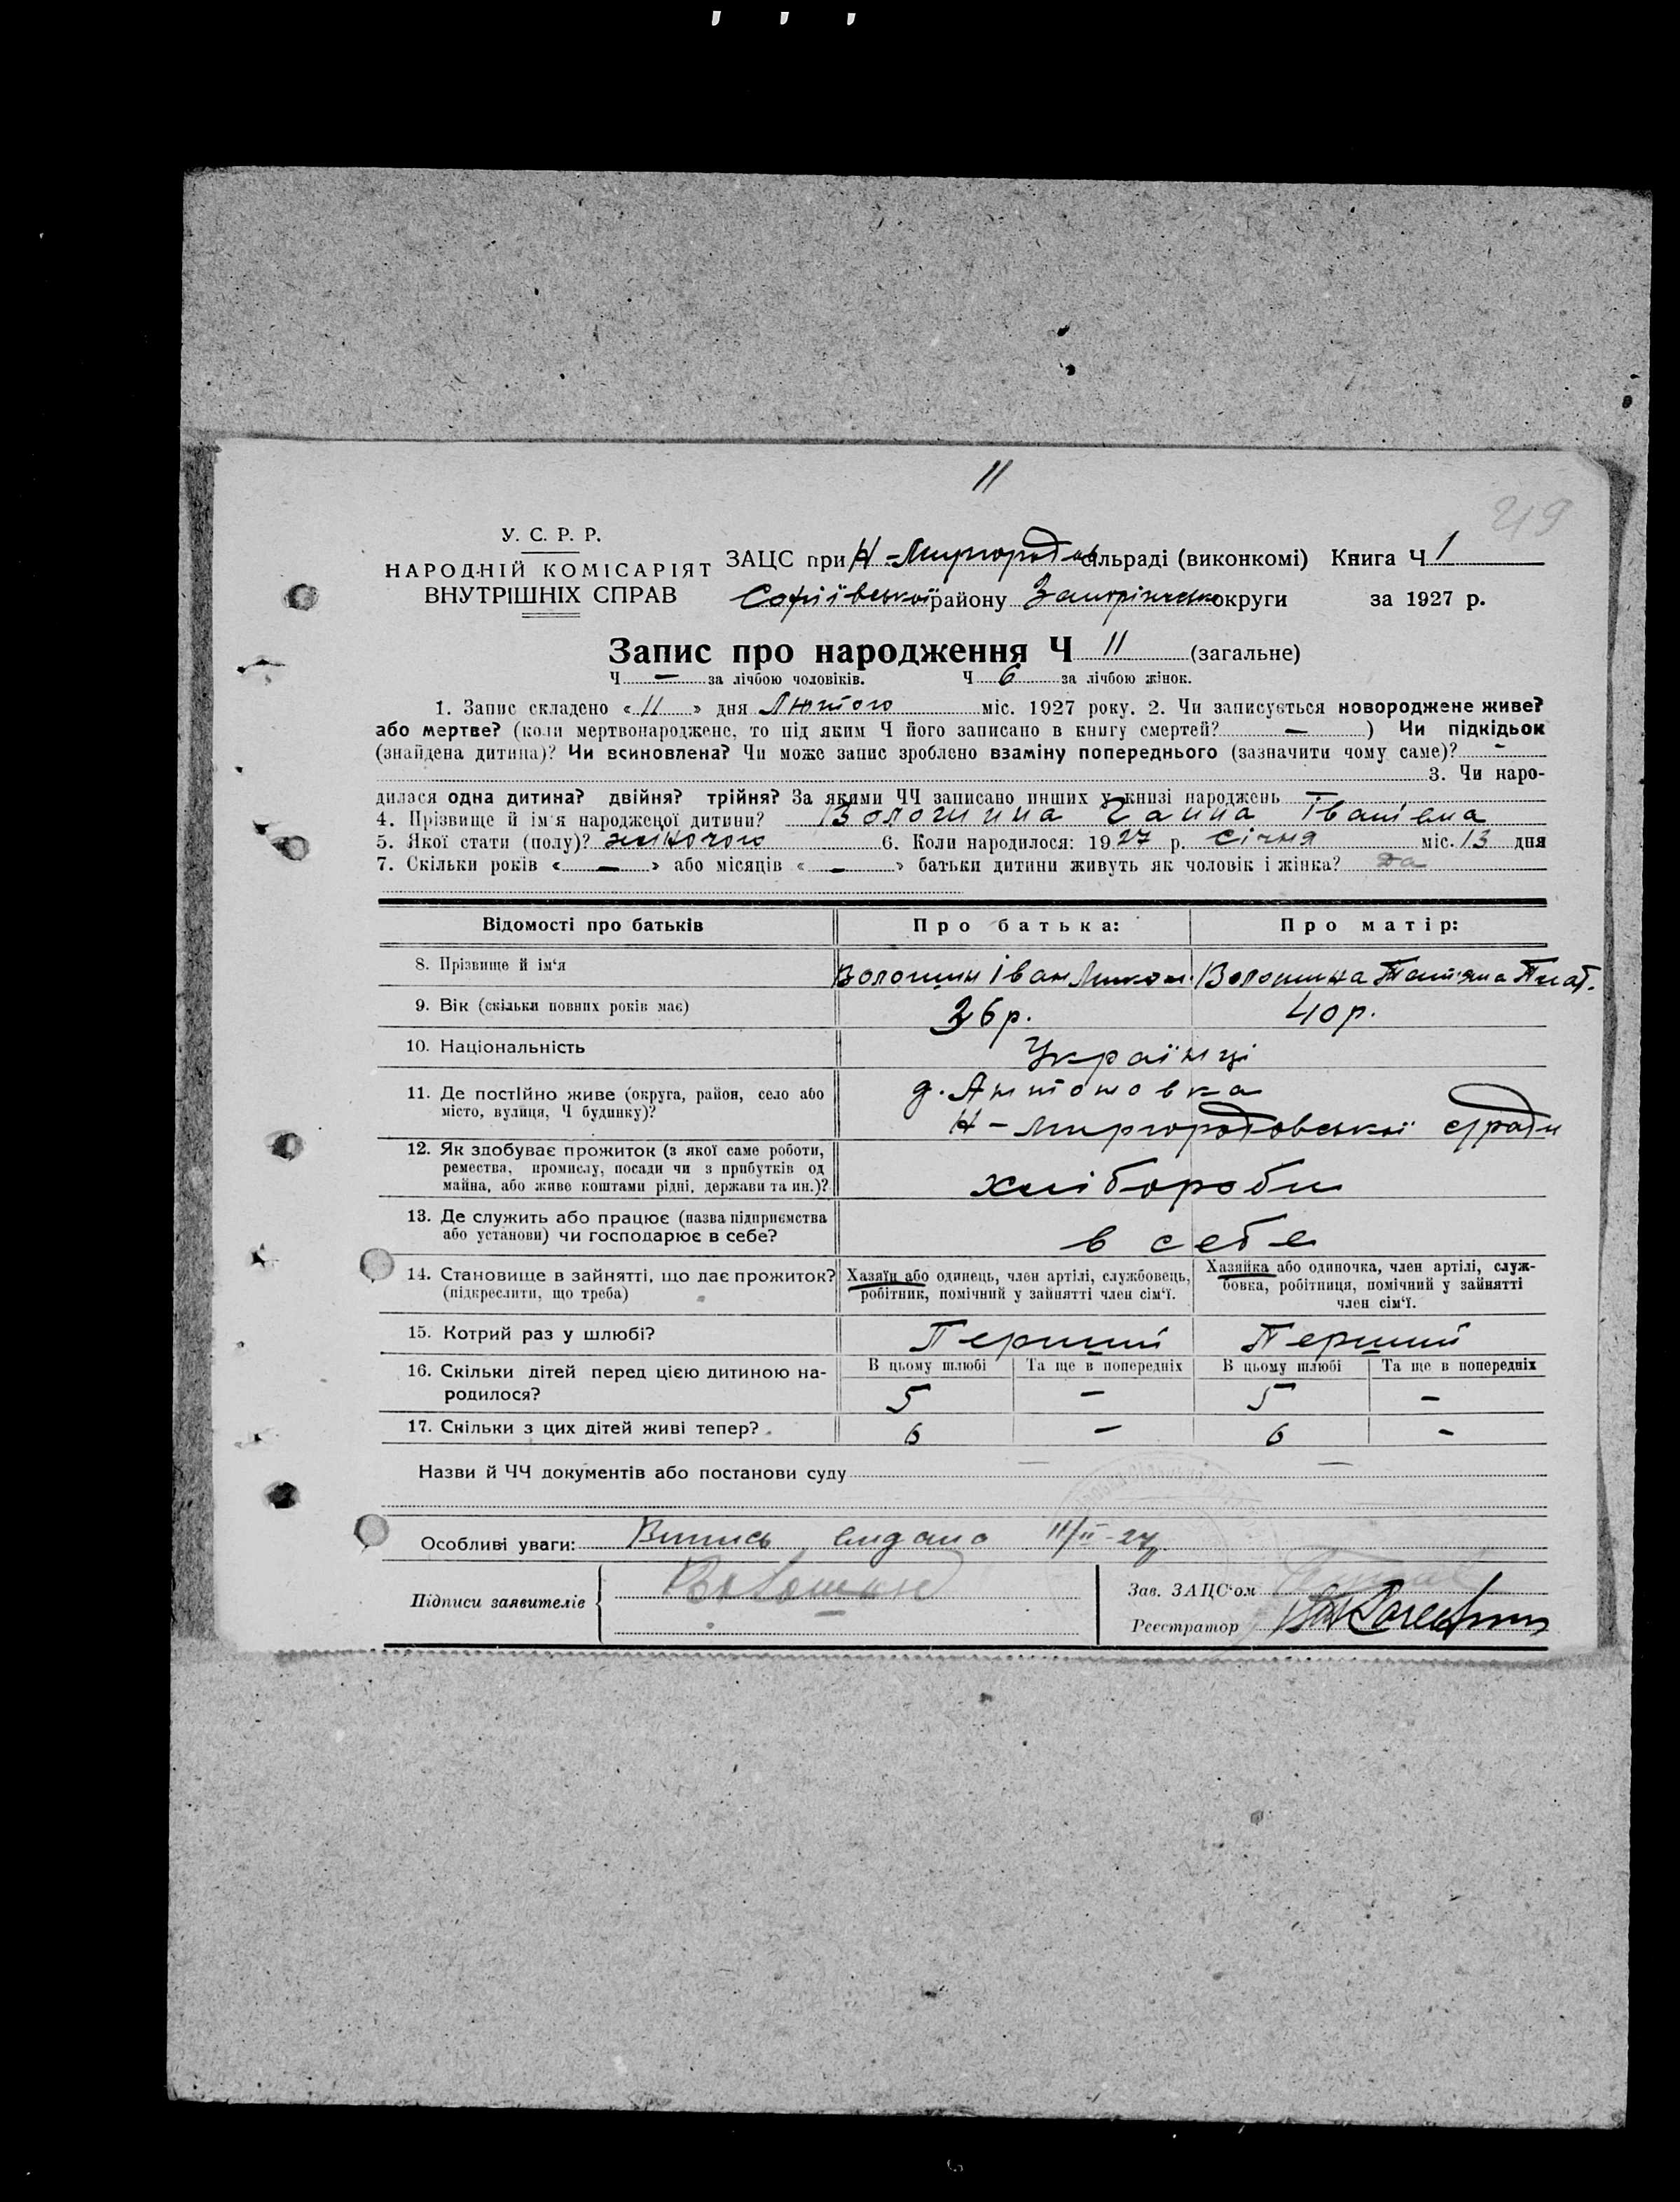 11
219
У. С. Р. Р.
НАРОДНІЙ КОМІСАРІЯТ
ВНУТРІШНІХ СПРАВ
ЗАЦС при Н-Миргородов сільраді (виконкомі) Книга Ч 1
Софіївської району Запоріжської округи за 1927 р.
Запис про народження Ч 11 (загальне)
Ч — за лічбою чоловіків. Ч 6 за лічбою жінок.
1. Запис складено « 11 » дня Лютого міс. 1927 року. 2. Чи записується новороджене живе?
або мертве? (коли мертвонароджене, то під яким Ч його записано в книгу смертей? — ) Чи підкідьок
(знайдена дитина)? Чи всиновлена? Чи може запис зроблено взаміну попереднього (зазначити чому саме)? -
3. Чи наро-
дилася одна дитина? двійня? трійня? За якими ЧЧ записано инших у книзі народжень —
4. Прізвище й ім'я народженої дитини? Волошина Ганна Іванівна
5. Якої стати (полу)? жіночого 6. Коли народилося: 1927 р. Січня міс. 13 дня
7. Скільки років « — » або місяців « — » батьки дитини живуть як чоловік і жінка? да
Відомості про батьків Про батька: Про матір:
8. Прізвище й ім'я Волошин Іван Микол. Волошина Татяна Гнат.
9. Вік (скільки повних років має) 36 р. 40 р.
10. Національність Українці
11. Де постійно живе (округа, район, село або
місто, вулиця, Ч будинку)?
д. Антоновка
Н-Миргородовської с/ради
12. Як здобуває прожиток (з якої саме роботи,
ремества, промислу, посади чи з прибутків од
майна, або живе коштами рідні, держави та ин.)?
хлібороби
13. Де служить або працює (назва підприємства
або установи) чи господарює в себе?
в себе
14. Становище в зайнятті, що дає прожиток?
(підкреслити, що треба)
Хазяїн або одинець, член артілі, службовець,
робітник, помічний у зайнятті член сім'ї.
Хазяйка або одиночка, член артілі, служ-
бовка, робітниця, помічний у зайнятті
член сім'ї.
15. Котрий раз у шлюбі? Перший Перший
16. Скільки дітей перед цією дитиною на-
родилося?
В цьому шлюбі Та ще в попередніх В цьому шлюбі Та ще в попередніх
5 — 5 —
17. Скільки з цих дітей живі тепер? 6 — 6 -
Назви й ЧЧ документів або постанови суду — —
Особливі уваги: Випись видано 11/II-27р.
Підписи заявителів Волошин
Зав. ЗАЦС'ом
Реєстратор